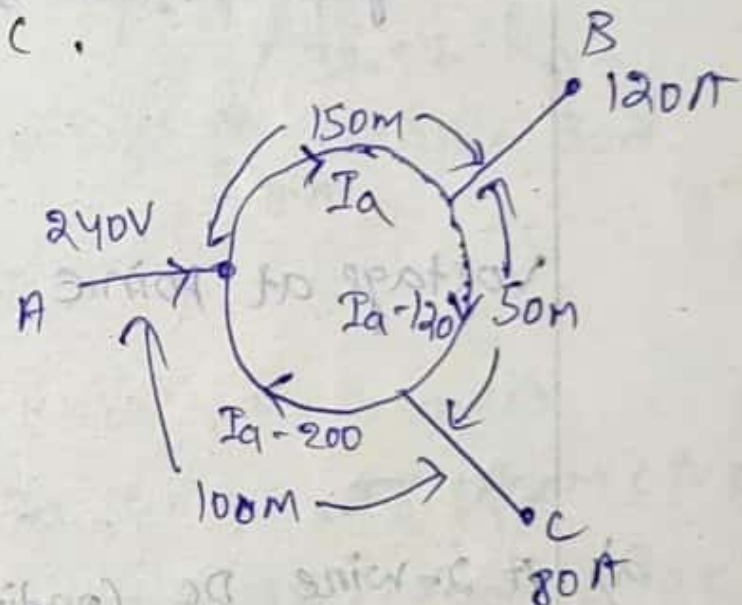 C .
B
120A
150m
Ia
240V
A
Ia-120
50m
Ia-200
100m
C
80A